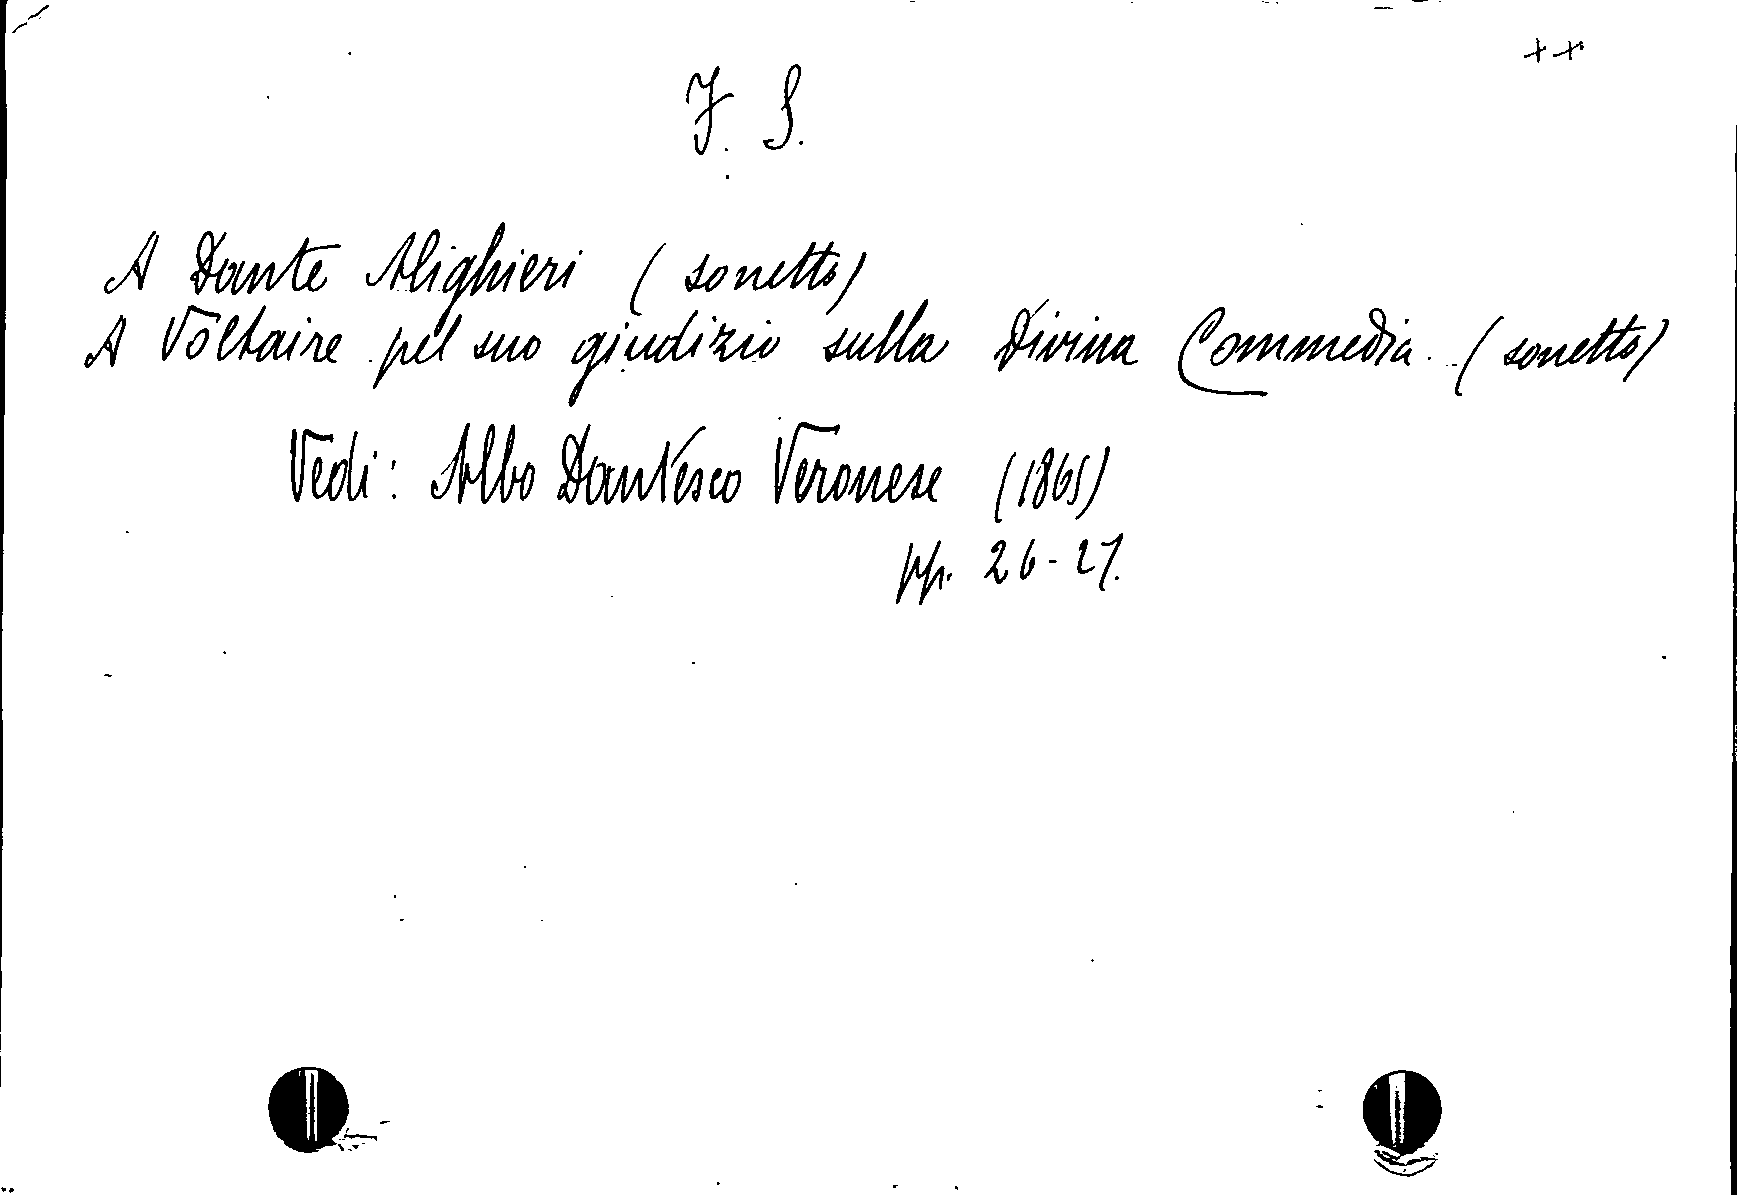 ++
F. S.
A Dante Alighieri (sonetto)
A Voltaire pel suo giudizio sulla Divina Commedia. (sonetto)
Vedi: Albo Dantesco Veronese (1865)
pp. 26-27.